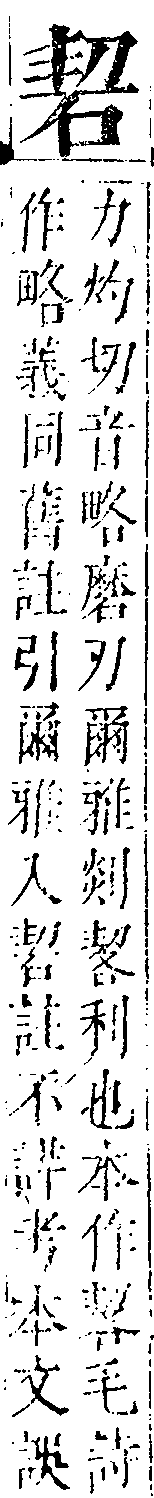 䂮
力灼切音略磨刃爾雅剡䂮利也本作䂮毛詩
作略義同舊註引爾雅入䂮註不詳考本文誤